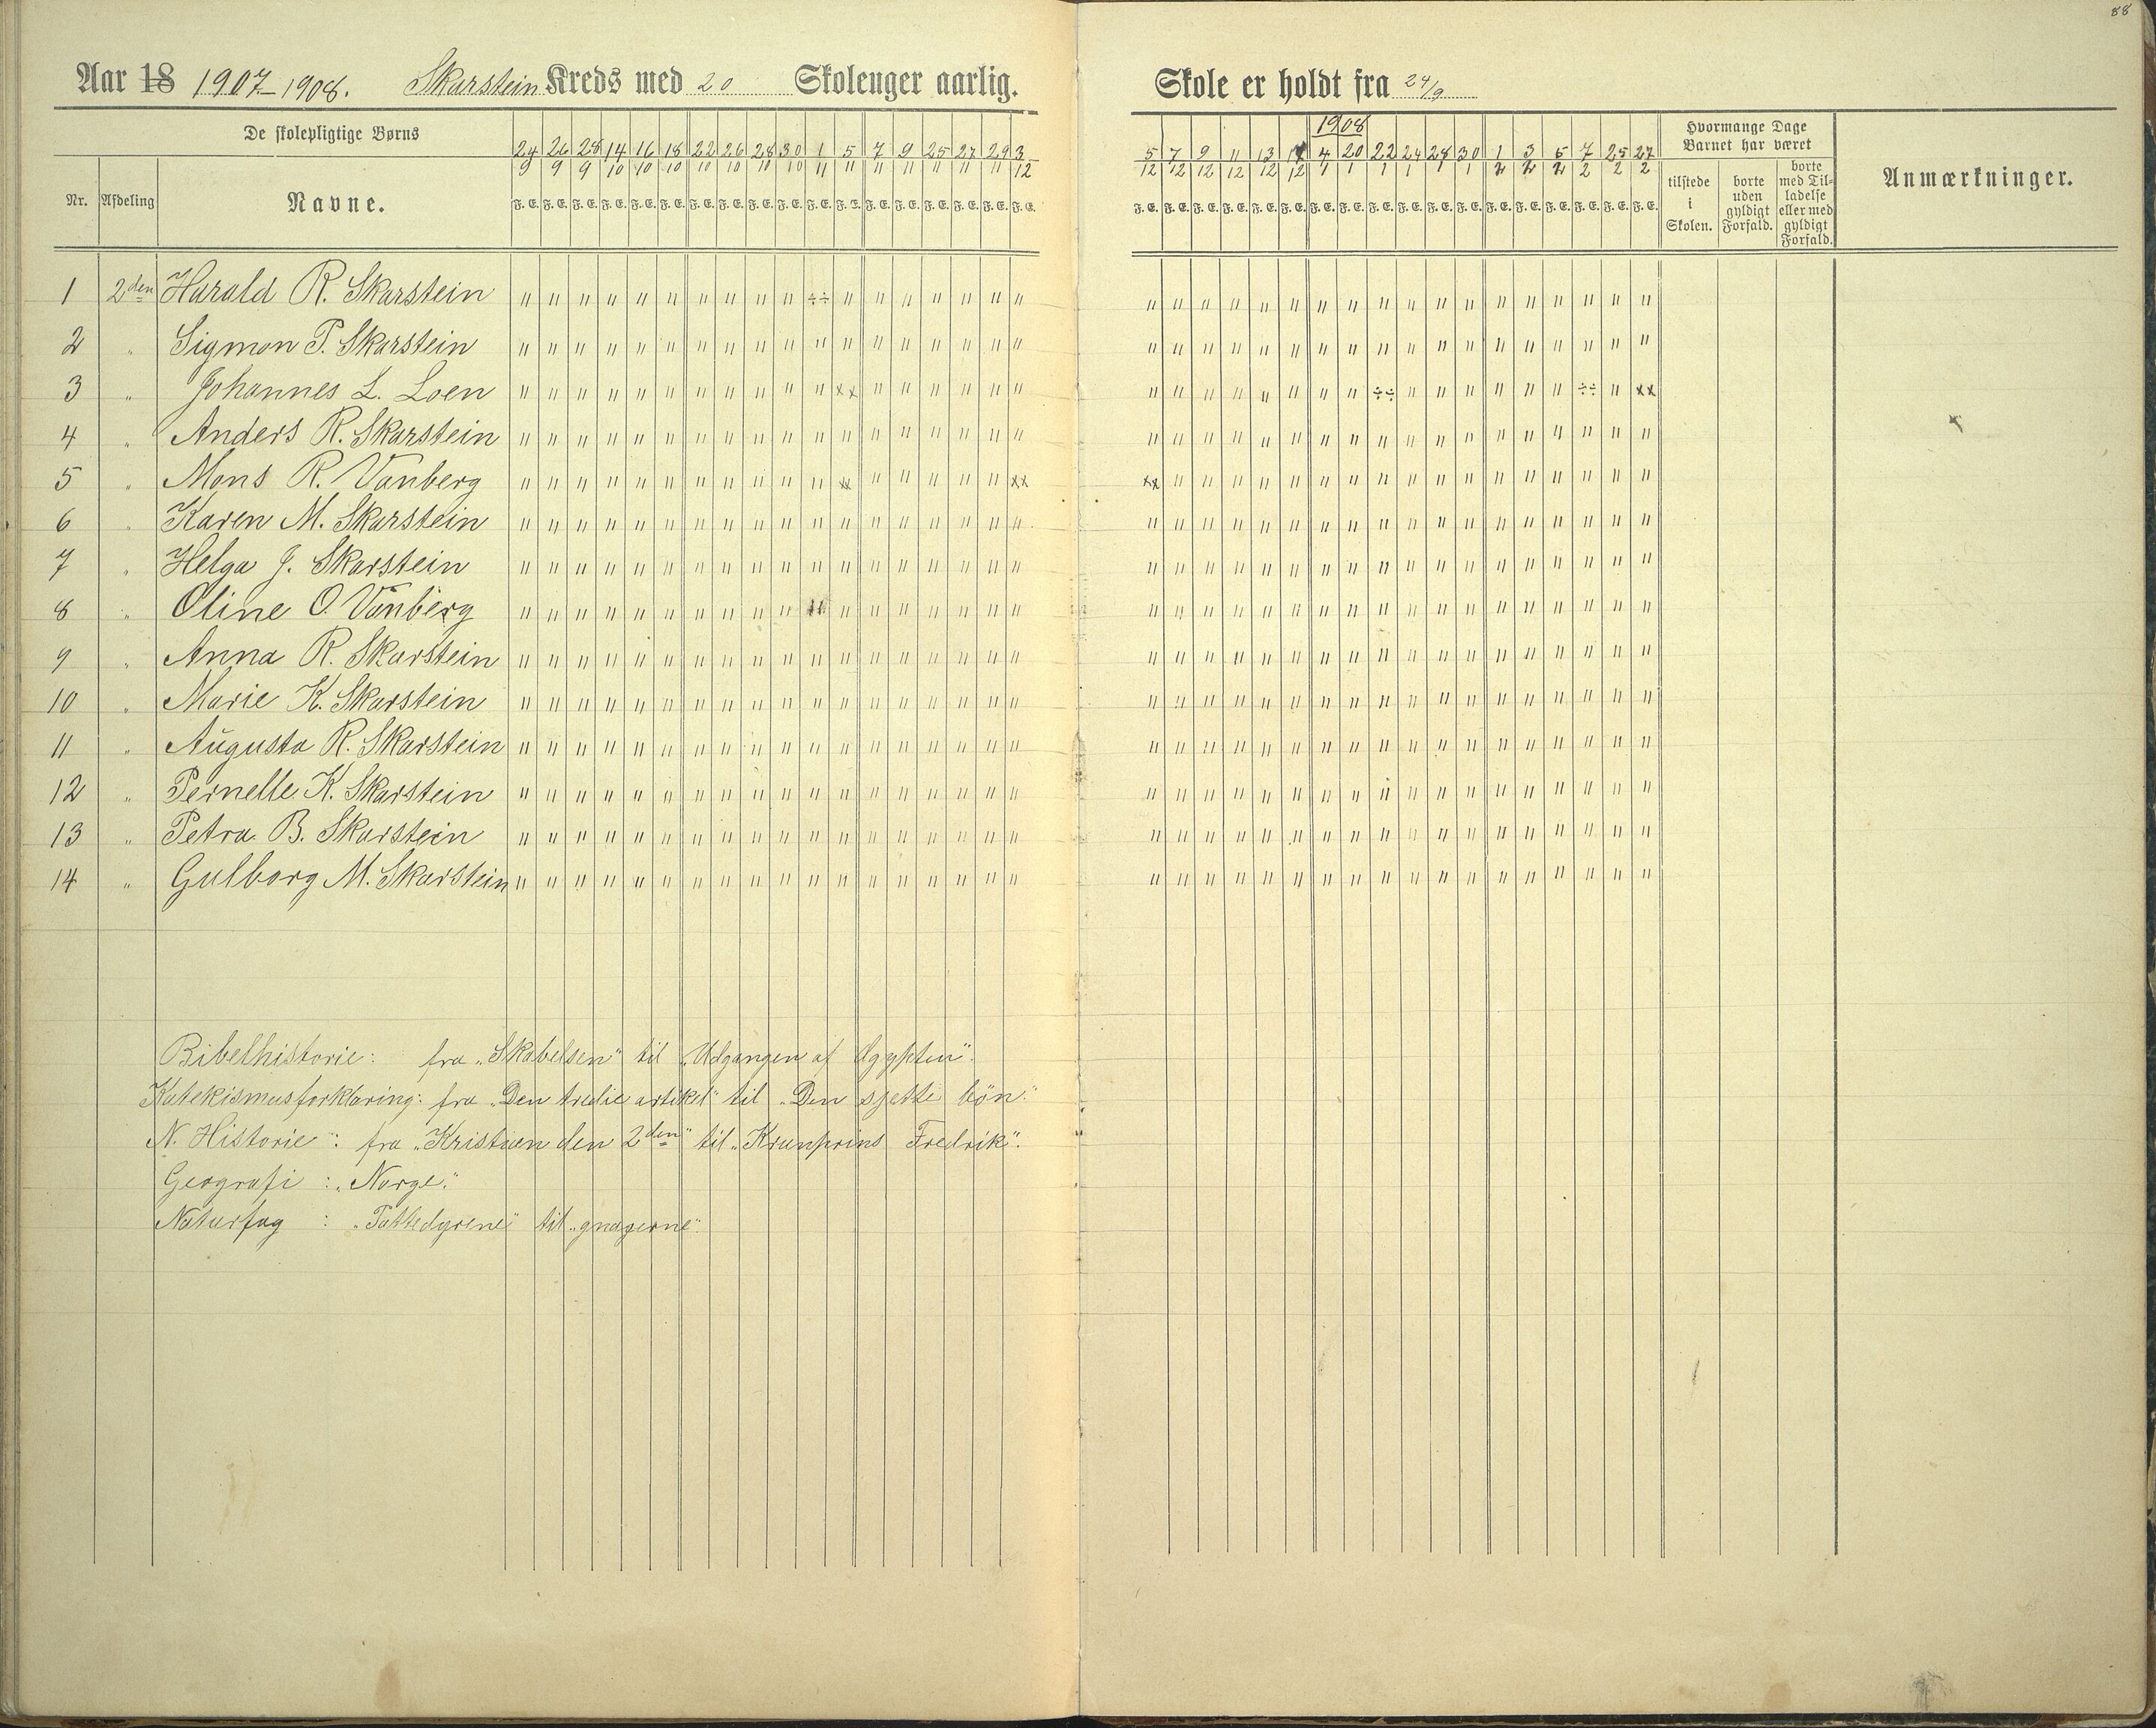 88
Aar 18 1907–1908. Skarstein Kreds med 20 Skoleuger aarlig. Skole er holdt fra 24/9
De skolepligtige Børns
Nr. Afdeling Navne.
24/9 26/9 28/9 14/10 16/10 18/10 22/10 26/10 28/10 30/10 1/11 5/11 7/11 9/11 25/11 27/11 29/11 3/12
F. E. F. E. F. E. F. E. F. E. F. E. F. E. F. E. F. E. F. E. F. E. F. E. F. E. F. E. F. E. F. E. F. E. F. E.
1908
5/12 7/12 9/12 11/12 13/12 17/12 4/1 20/1 22/1 24/1 28/1 30/1 1/2 3/2 5/2 7/2 25/2 27/2
F. E. F. E. F. E. F. E. F. E. F. E. F. E. F. E. F. E. F. E. F. E. F. E. F. E. F. E. F. E. F. E. F. E. F. E.
Hvormange Dage
Barnet har været
tilstede
i
Skolen.
borte
uden
gyldigt
Forfald.
borte
med Til-
ladelse
eller med
gyldigt
Forfald.
Anmærkninger.
1 2den Harald R. Skarstein " " " " " " " " " " ÷÷ " " " " " " " " " " " " " " " " " " " " " " " " "
2 " Sigmon P. Skarstein " " " " " " " " " " " " " " " " " " " " " " " " " " " " " " " " " " " "
3 " Johannes L. Loen " " " " " " " " " " " xx " " " " " " " " " " " " " " ÷÷ " " " " " " ÷÷ " xx
4 " Anders R. Skarstein " " " " " " " " " " " " " " " " " " " " " " " " " " " " " " " " " " " "
5 " Mons R. Vanberg " " " " " " " " " " " xx " " " " " xx xx " " " " " " " " " " " " " " " " "
6 " Karen M. Skarstein " " " " " " " " " " " " " " " " " " " " " " " " " " " " " " " " " " " "
7 " Helga J. Skarstein " " " " " " " " " " " " " " " " " " " " " " " " " " " " " " " " " " " "
8 " Oline O. Vanberg " " " " " " " " " " " " " " " " " " " " " " " " " " " " " " " " " " " "
9 " Anna R. Skarstein " " " " " " " " " " " " " " " " " " " " " " " " " " " " " " " " " " " "
10 " Marie K. Skarstein " " " " " " " " " " " " " " " " " " " " " " " " " " " " " " " " " " " "
11 " Augusta R. Skarstein " " " " " " " " " " " " " " " " " " " " " " " " " " " " " " " " " " " "
12 " Pernelle K. Skarstein " " " " " " " " " " " " " " " " " " " " " " " " " " " " " " " " " " " "
13 " Petra B. Skarstein " " " " " " " " " " " " " " " " " " " " " " " " " " " " " " " " " " " "
14 " Gulborg M. Skarstein " " " " " " " " " " " " " " " " " " " " " " " " " " " " " " " " " " " "
Bibelhistorie: fra „Skabelsen" til „Udgangen af Ægypten".
Katekismusforklaring: fra „Den tredie artikel" til „Den sjette bön."
N. Historie: fra „Kristian den 2den" til „Kronprins Fredrik".
Geografi: „Norge."
Naturfag: „Pattedyrene" til „gnagerne".